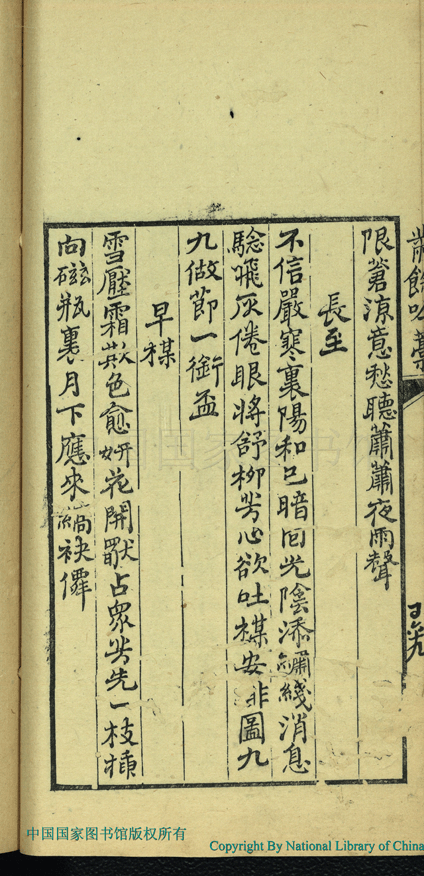 限蒼涼意愁聽蕭蕭夜雨聲
長至
不信嚴寒裏陽和已暗回光陰添繡綫消息
驗飛灰倦眼將舒柳芳心欲吐楳安排圖九
九做節一銜盃
早楳
雪壓霜欺色愈妍花開占眾芳先一枝插
向磁瓶裏月下應來袂僊
中国国家图书馆版权所有
Copyright By National Library of China